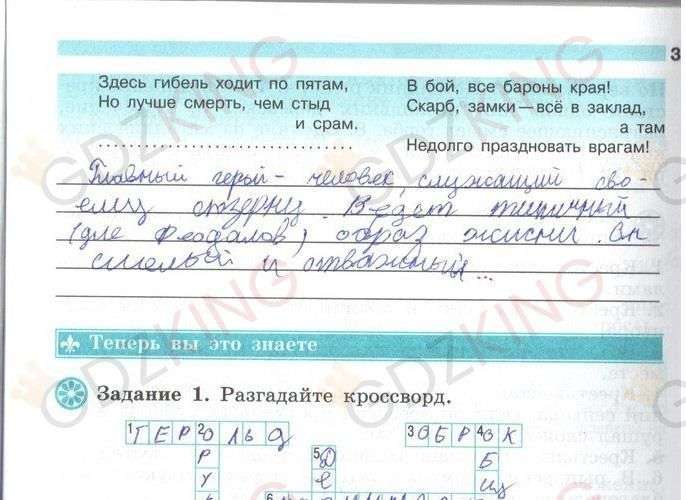 3
Здесь гибель ходит по пятам,
Но лучше смерть, чем стыд
и срам.
В бой, все бароны края!
Скарб, замки — всё в заклад,
а там
Недолго праздновать врагам!
Главный герой - человек, служащий сво-
ему сюзерену. Ведёт типичный
(для феодалов) образ жизни. Он
смелый и отважный...
Теперь вы это знаете
Задание 1. Разгадайте кроссворд.
1 Г Е Р 2 О Л Ь Д
3 О Б Р 4 О К
Р
У
5 Д
Е
Б
Щ
6
GDZKING